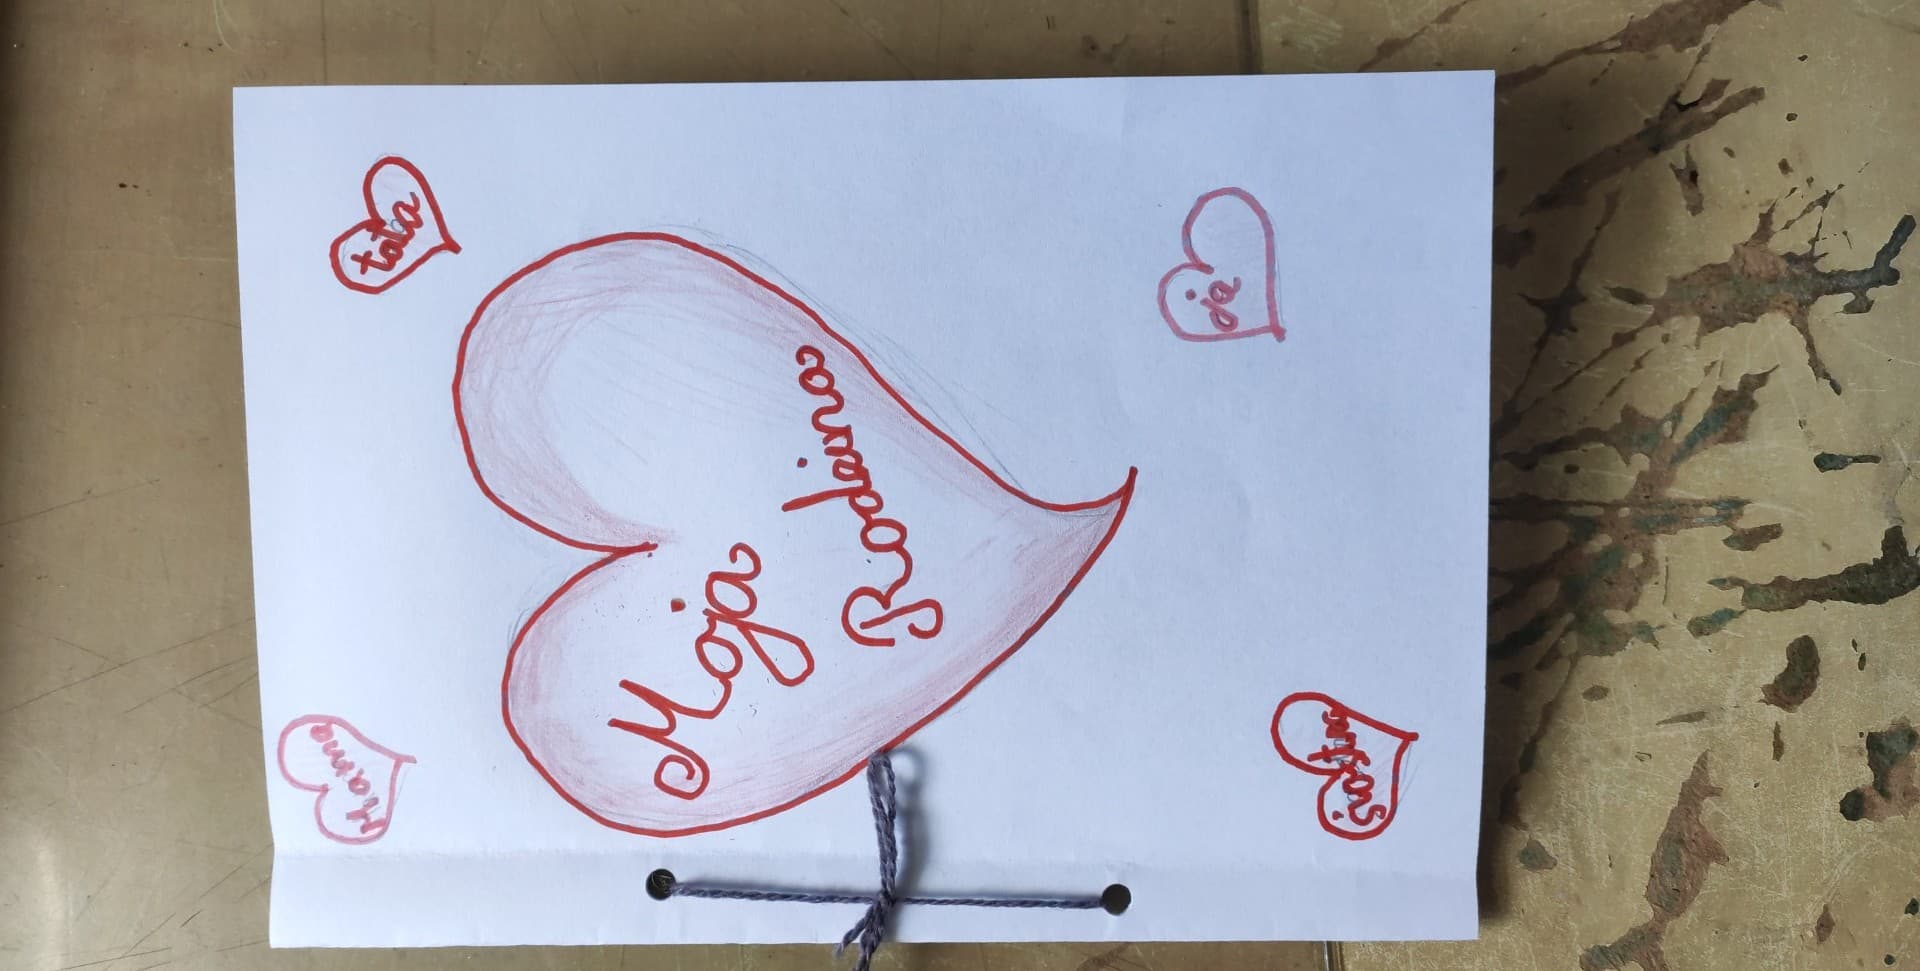 Mama
tata
Moja
Rodzina
siostra
ja